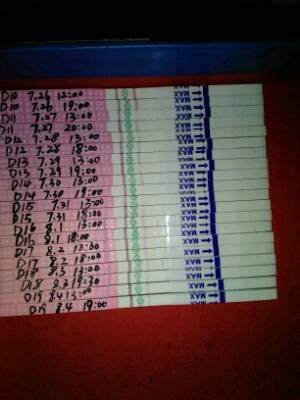 D10 7.26 12:00
D10 7.26 19:00
D11 7.27 13:00
D11 7.27 20:00
D12 7.28 13:00
D12 7.28 18:00
D13 7.29 13:00
D13 7.29 19:00
D14 7.30 13:00
D14 7.30 19:00
D15 7.31 13:00
D15 7.31 18:00
D16 8.1 13:00
D16 8.1 18:00
D17 8.2 13:30
D17 8.2 18:00
D18 8.3 13:00
D18 8.3 19:30
D19 8.4 13:00
D19 8.4 19:00
MAX
MAX
MAX
MAX
MAX
MAX
MAX
MAX
MAX
MAX
MAX
MAX
MAX
MAX
MAX
MAX
MAX
MAX
MAX
MAX